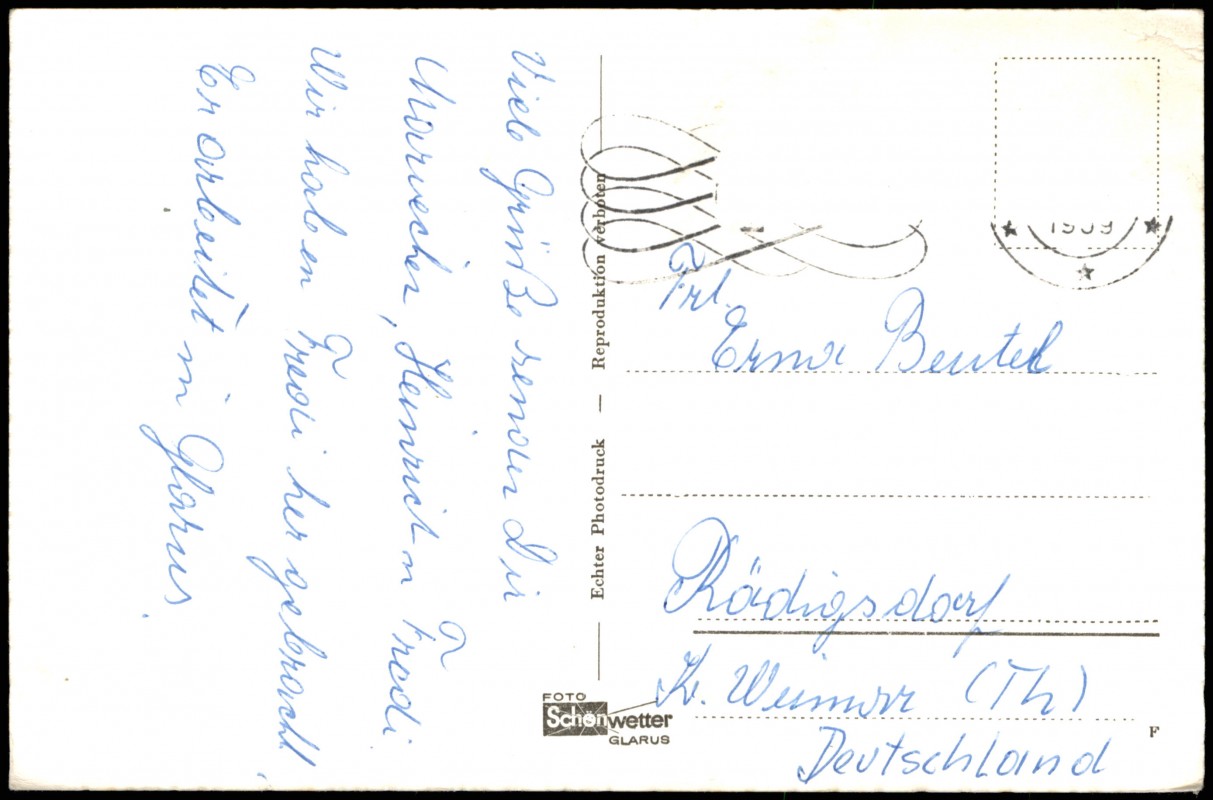 Viele Grüße senden Dir
Mariechen, Heinrich u Fredi
Wir haben Fredi her gebracht,
Er arbeitet in Glarus.
Echter Photodruck — Reproduktion verboten
1959
Frl.
Erna Beutel
Rödigsdorf
Kr. Weimar (Th)
Deutschland
FOTO
Schönwetter
GLARUS
F